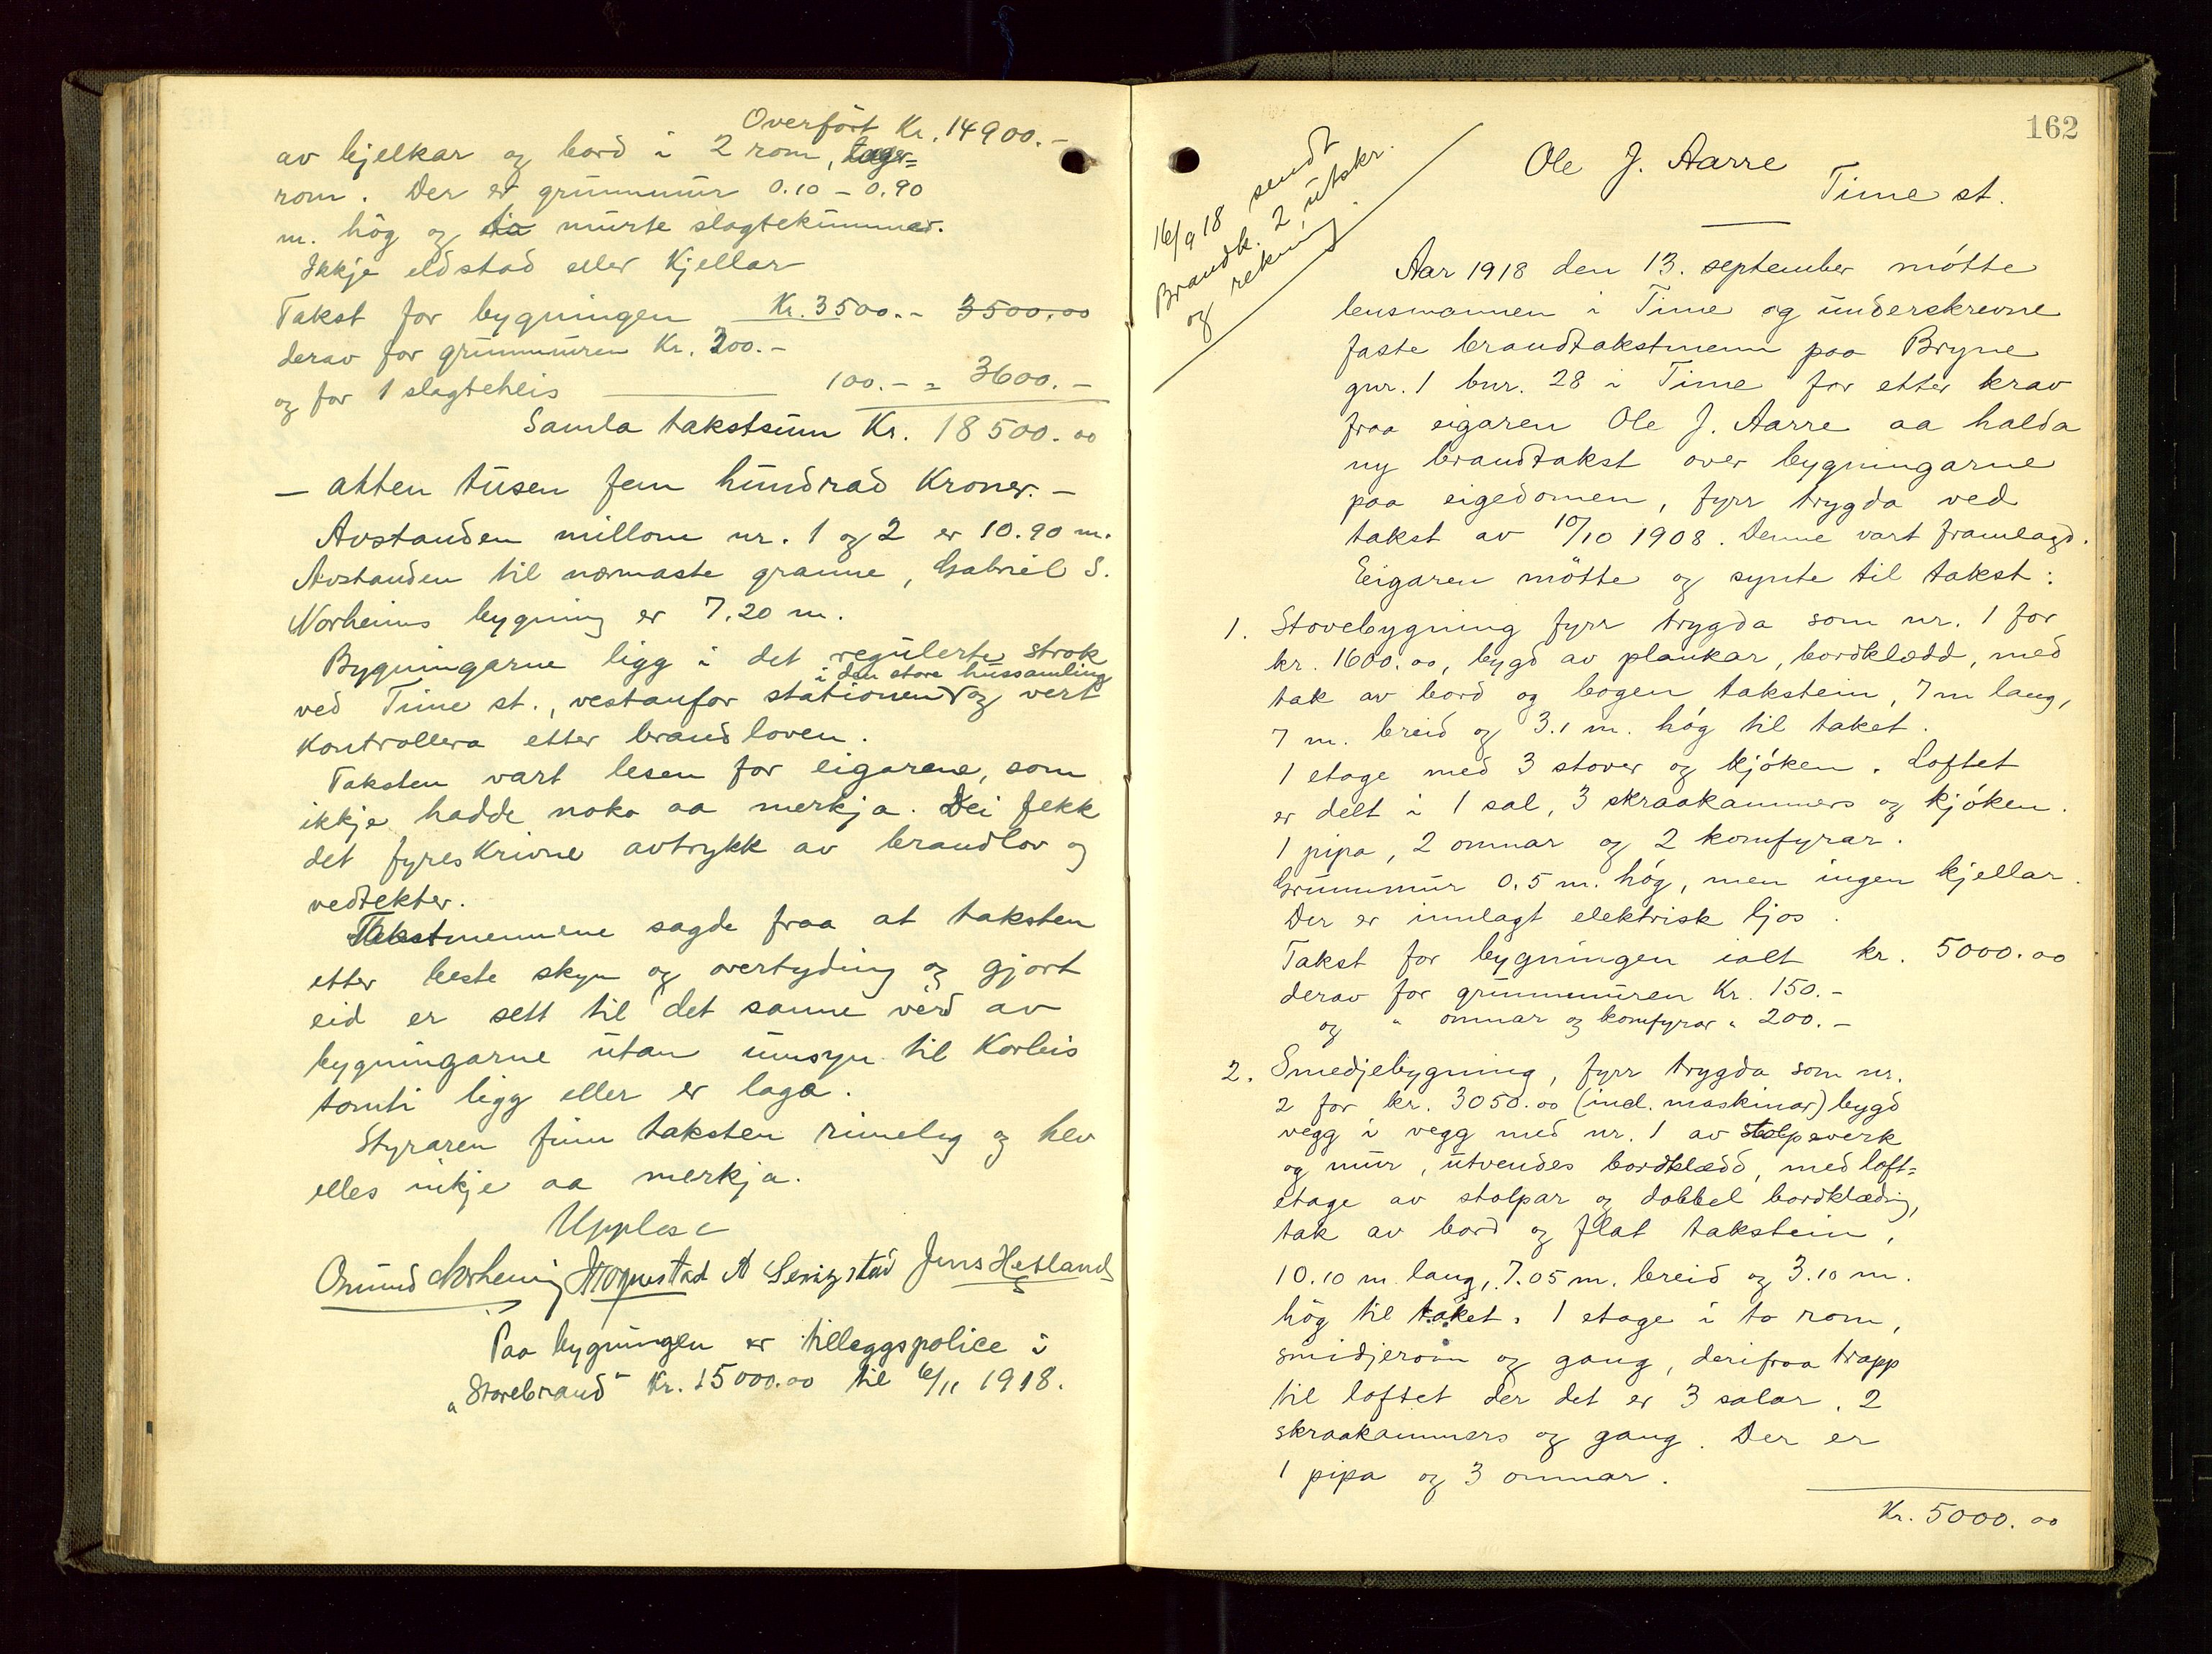 Overført Kr. 14900.-
av bjelkar og bord i 2 rom, lager=
rom. Der er grunnmur 0.10 - 0.90
m. høg og murte slagtekummer.
Ikkje eldstad eller Kjellar
Takst for bygningen Kr. 3500.- 3500.00
derav for grunnmuren Kr. 300.-
og for 1 slagteheis 100.- = 3600.-
Samla takstsum Kr. 18500.00
- atten tusen fem hundrad Kroner. -
Avstanden millom nr. 1 og 2 er 10.90 m.
Avstanden til nærmaste granne, Gabriel S.
Norheims bygning er 7.20 m.
Bygningarne ligg i det regulerte strok
i den store hussamling
ved Time st., vestanfor stationen og vert
Kontrollera etter brandloven.
Taksten vart lesen for eigarene, som
ikkje hadde noko aa merkja. Dei fekk
det fyreskrivne avtrykk av brandlov og
vedtekter.
Takstmennene sagde fraa at taksten
etter beste skyn og overtyding og gjort
eid er sett til det sanne verd av
bygningarne utan umsyn til Korleis
tomti ligg eller er laga.
Styraren finn taksten rimeleg og hev
elles inkje aa merkja.
Upplese
Omund Norheim A Serigstad Jens Hetland
Paa bygningen er tilleggspolice i
"Storebrand" Kr. 15000.00 til 6/11 1918.
162
16/9 18 sendt
Brandk. 2 utskr.
og rekning.
Ole J. Aarre
Time st.
Aar 1918 den 13. september møtte
lensmannen i Time og underskrevne
faste brandtakstmenn paa Bryne
gnr. 1 bnr. 28 i Time for etter krav
fraa eigaren Ole J. Aarre aa halda
ny brandtakst over bygningarne
paa eigedomen, fyrr trygda ved
takst av 10/10 1908. Denne vart framlagd.
Eigaren møtte og synte til takst:
1. Stovebygning fyrr trygda som nr. 1 for
kr. 1600.00, bygd av plankar, bordklædd, med
tak av bord og bogen takstein, 7 m lang,
7 m. breid og 3.1 m. høg til taket.
1 etage med 3 stover og kjøken. Loftet
er delt i 1 sal, 3 skraakammers og kjøken.
1 pipa, 2 omnar og 2 komfyrar.
Grunnmur 0.5 m. høg, men ingen kjellar.
Der er innlagt elektrisk ljos.
Takst for bygningen ialt kr. 5000.00
derav for grunnmuren Kr. 150.-
og " omnar og komfyrar " 200.-
2. Smedjebygning, fyrr trygda som nr.
2 for kr. 3050.00 (incl. maskinar) bygd
vegg i vegg med nr. 1 av stolpeverk
og mur, utvendes bordklædd, med loft=
etage av stolpar og dobbel bordklædnig,
tak av bord og flat takstein,
10.10 m. lang, 7.05 m. breid og 3.10 m.
høg til taket. 1 etage i to rom,
smidjerom og gang, derifraa trapp
til loftet der det er 3 salar, 2
skraakammers og gang. Der er
1 pipa og 3 omnar.
Kr. 5000.00